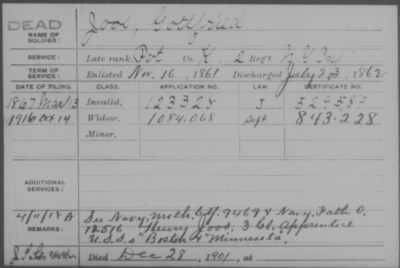 DEAD
NAME OF SOLDIER:
Joos, Gottfried
SERVICE:
Late rank, Pvt Co. K, 2 Reg't
TERM OF SERVICE:
Enlisted Nov. 16, 1861 Discharged July 23, 1862
DATE OF FILING. CLASS. APPLICATION NO. LAW. CERTIFICATE NO.
1867 Invalid, 123328
1916 Oct 14 Widow, 1084.068 Sept 843.228
Minor,
ADDITIONAL SERVICES:
REMARKS:
See Navy, Moth. Ctf. 9469 & Navy, Fath. O.
Henry Joos, 3 Cl. Apprentice
U.S.S.s "Boston" & "Minnesota".
Died Dec 28, 1901, at